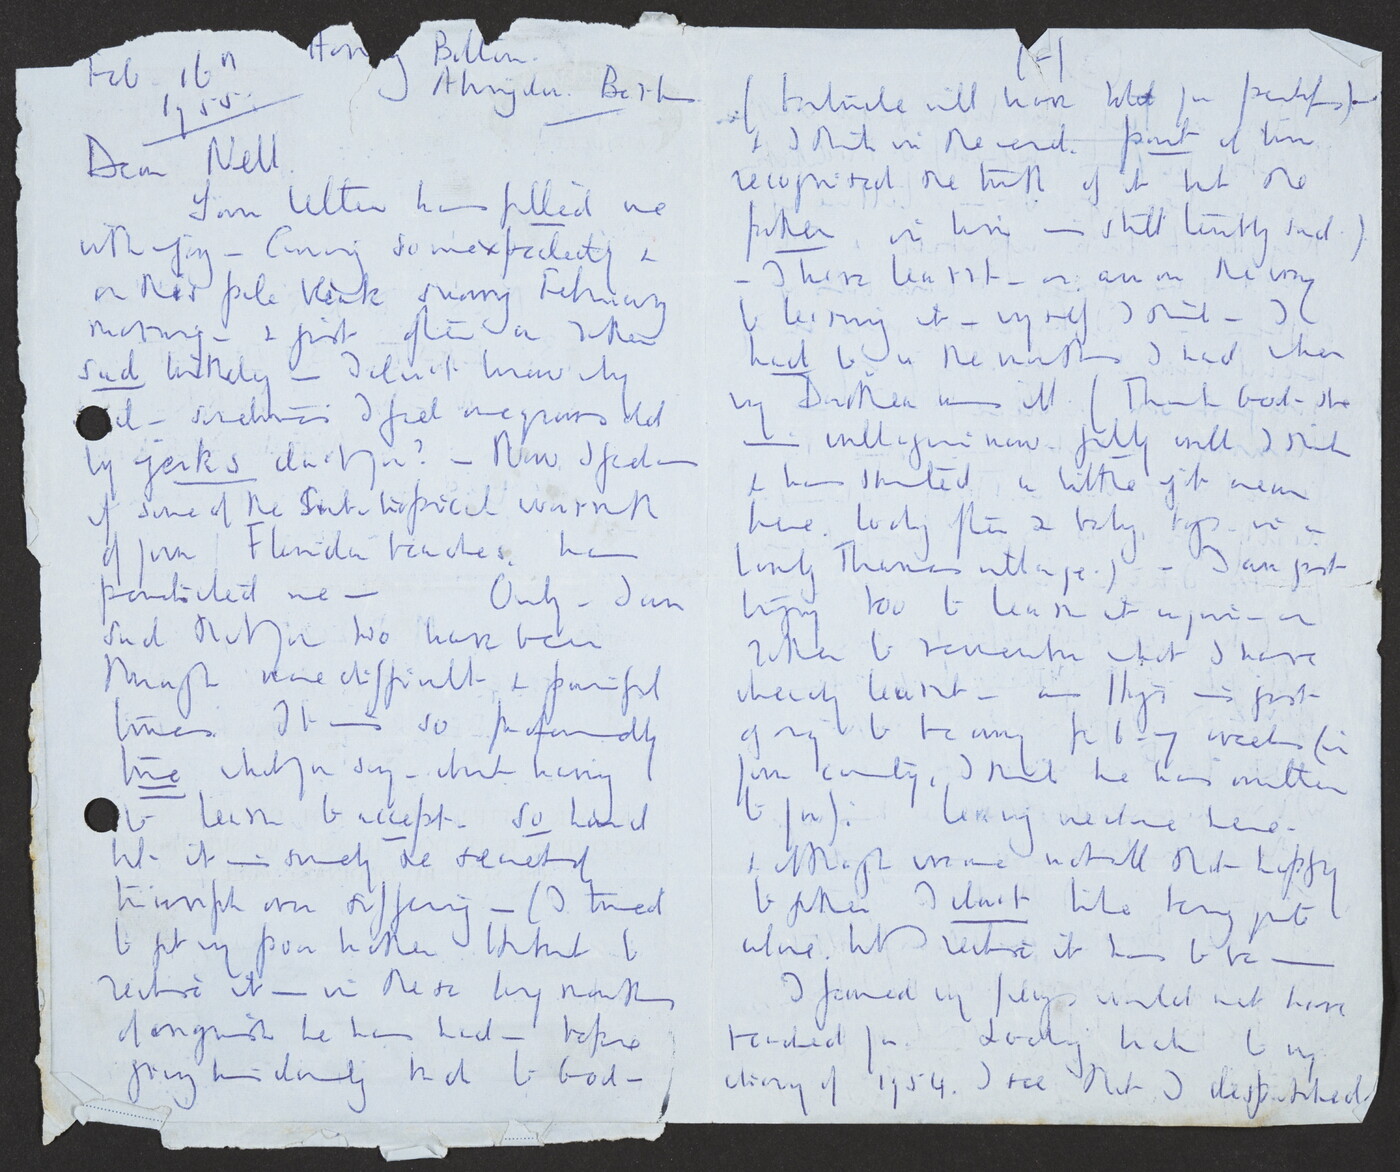 Feb 16th
1955.
Abingdon. Berks
Dear Nell.
Your letter has filled me
with joy – Coming so unexpectedly &
on this pale bleak snowy February
morning – & just after a rather
sad birthday – I don't know why
sad – sometimes I feel one grows old
by jerks don't you? – Now I feel as
if some of the Sub-tropical warmth
of your Florida beaches, has
penetrated me – Only – I am
sad that you too have been
through more difficult & painful
times. It is so profoundly
true what you say – about having
to learn to accept – so hard
but it is surely the secret of
triumph over suffering – (I tried
to get my poor brother to
realise it – in these long months
of anguish he has had – before
giving himself back to God –
(-)
( Gertrude will have told you perhaps)
& I think in the end. part of him
recognised the truth of it but the
other in him is still terribly sad.)
– I have learnt – or am on the way
to learning it – myself I think – I
had to in the months I had when
my Dorothea was ill. (Thank God she
is well again now – fully well I think
& has started a little job near
here. looking after 2 baby boys in a
lovely Thames village.) – I am just
trying too to learn it again – or
rather to remember what I have
already learnt – as Hugo is just
going to be away for weeks (in
your country, I think he has written
to you): leaving me alone here –
& although we are not all that happy
together I don't like being quite
alone. but I realise it has to be –
I feared my plays would not have
reached you. Looking back to my
diary of 1954. I see that I despatched